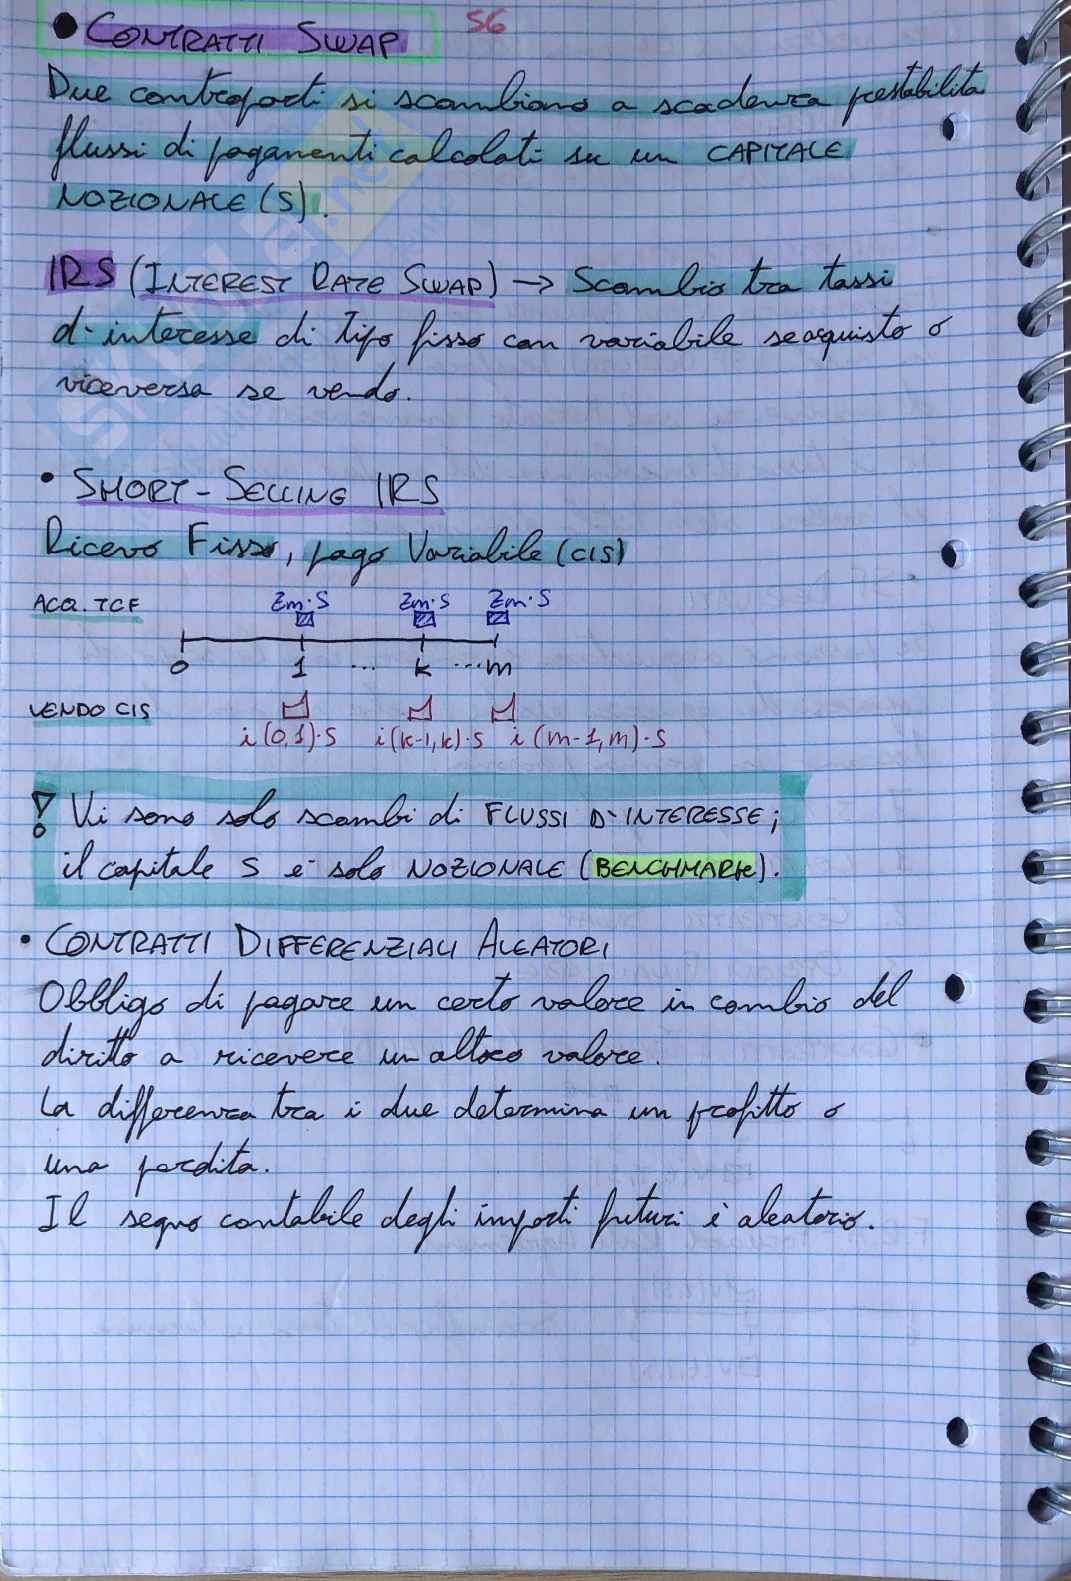 • CONTRATTI SWAP 56
Due controparti si scambiano a scadenza prestabilita
flussi di pagamenti calcolati su un CAPITALE
NOZIONALE (S).
IRS (INTEREST RATE SWAP) → Scambio tra tassi
d'interesse di tipo fisso con variabile se acquisto o
viceversa se vendo.
• SHORT-SELLING IRS
Ricevo Fisso, pago Variabile (CIS)
ACQ. TCF Zm·S Zm·S Zm·S
0 1 ... k ... m
VENDO CIS
i(0,1)·S i(k-1,k)·S i(m-1,m)·S
! Vi sono solo scambi di FLUSSI D'INTERESSE;
il capitale S è solo NOZIONALE (BENCHMARK).
• CONTRATTI DIFFERENZIALI ALEATORI
Obbligo di pagare un certo valore in cambio del
diritto a ricevere un altro valore.
La differenza tra i due determina un profitto o
una perdita.
Il segno contabile degli importi futuri è aleatorio.